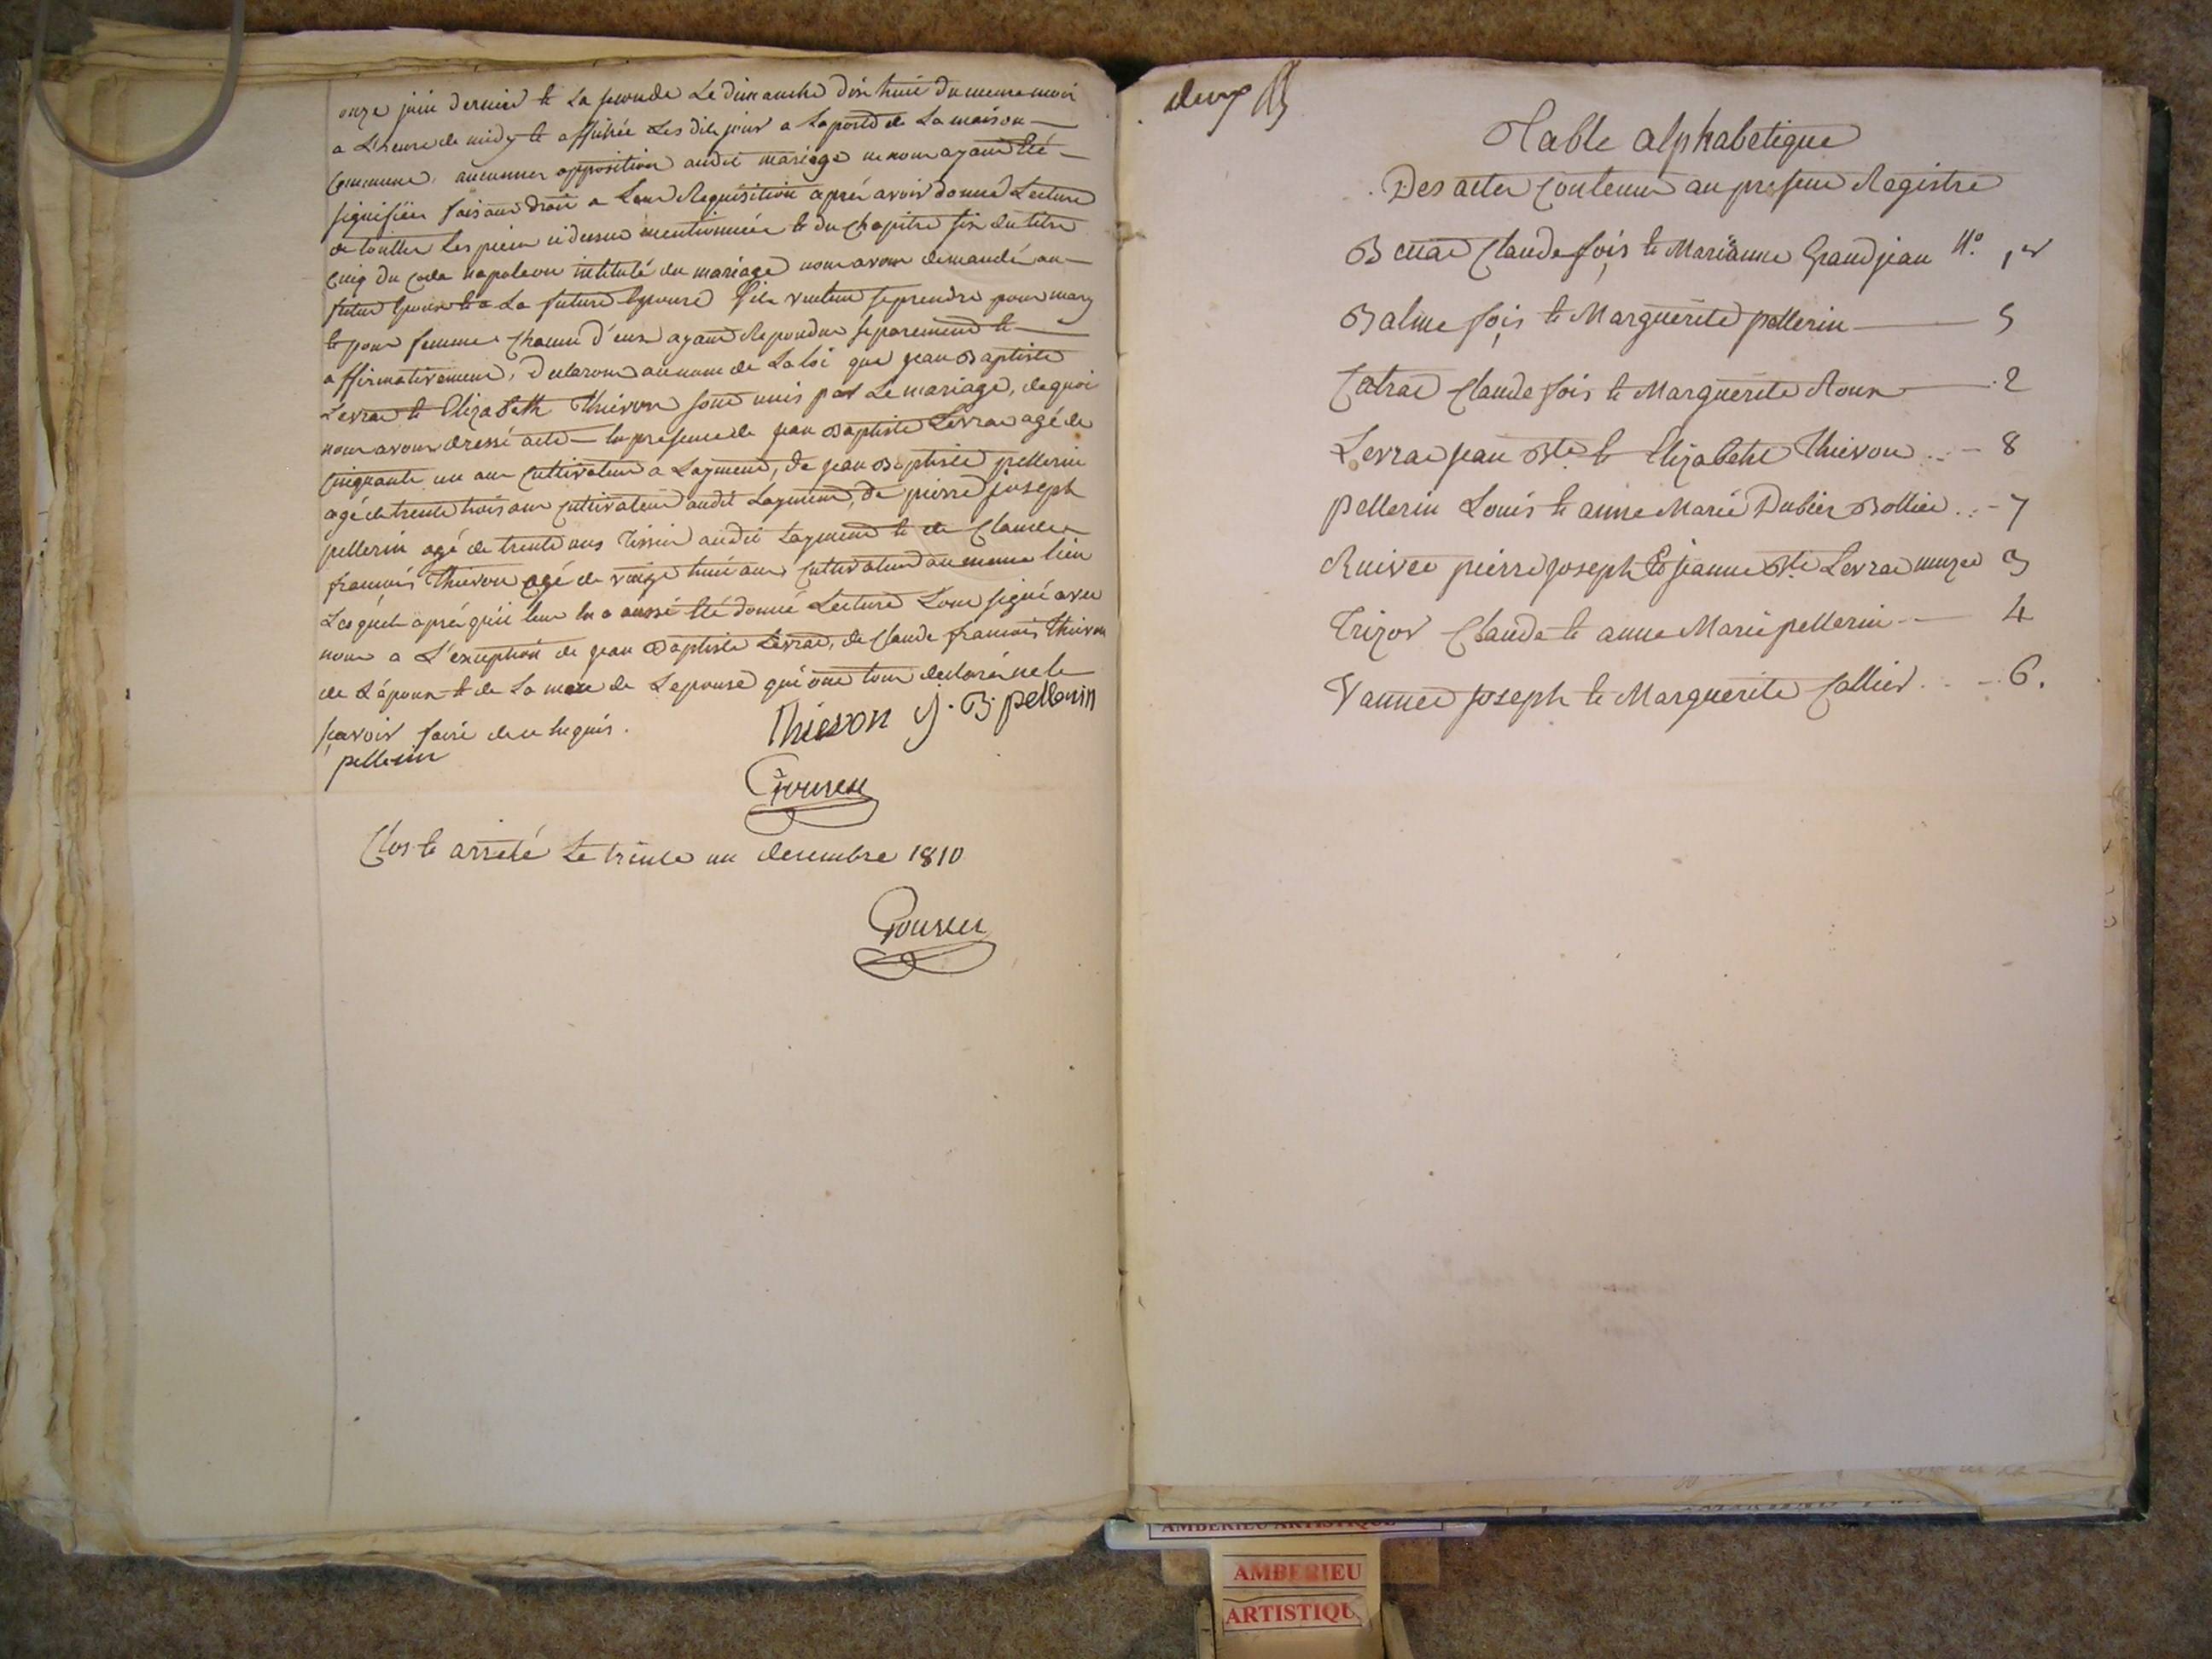 onze juin dernier et la seconde le dimanche dix huit du meme mois
a l'heure de midy et affichée les dits jours a la porte de la maison
commune, aucunnes opposition audit mariage ne nous ayant été
signifiées faisant droit a leur Requisition aprés avoir donné Lecture
de touttes les pieces ci dessus mentionnées et du chapitre six du titre
cinq du code napoleon intitulé du mariage nous avons demandé au
futur Epoux et a La future Epouse s'ils veulent se prendre pour mary
et pour femme chacun d'eux ayant Repondus separement et
affirmativement, declarons au nom de La Loi que jean Baptiste
Levrat et Elizabeth Thievon sont unis par Le mariage, de quoi
nous avons dressé acte en presence de jean Baptiste Levrat agé de
cinquante un ans cultivateur a Laymens, de jean Baptiste pellerin
agé de trente trois ans cultivateur audit Laymens, de pierre joseph
pellerin agé de trente ans Tissier audit Laymens et de Claude
francois Thievon agé de vingt huit ans cultivateur au meme lieu
Lesquels aprés qu'il leur en a aussi été donné Lecture L'ont signé avec
nous a L'exception de jean Baptiste Levrat, de Claude francois Thievon
de L'époux et de La mere de Lepouse qui ont tous declaré ne le
sçavoir faire de ce Requis.
Thievon J. B. pellerin
pellerin
Clos et arreté Le trente un decembre 1810
deux
Table alphabetique
Des actes Contenus au present Registre
Claude fois et Marianne Grandjean N.o 1er
Balme fois et Marguerite pellerin 5
Cotrat Claude fois et Marguerite Roux 2
Levrat jean Bte et Elizabeth Thievon 8
pellerin Louis et anne Marie Dubier Bollier 7
Ruivet pierre joseph Et jeanne Bte Levrat muzet 3
Trizor Claude et anne Marie pellerin 4
Vannet joseph et Marguerite Collier 6.
AMBERIEU ARTISTIQUE
AMBERIEU
ARTISTIQU